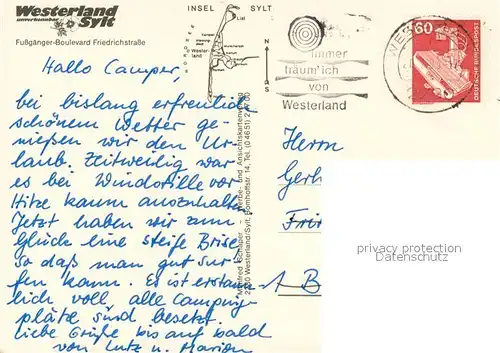 Westerland
unverkennbar Sylt
Fußgänger-Boulevard Friedrichstraße
INSEL SYLT
List
Westerland
NORDSEE
N
S
immer
träum' ich
von
Westerland
WES
60
DEUTSCHE BUNDESPOST
Hallo Camper,
bei bislang erfreulich
schönem Wetter ge-
nießen wir den Ur-
laub. Zeitweilig war
es bei Windstille vor
Hitze kaum auszuhalten
Jetzt haben wir zum
Glück eine steife Brise
so daß man gut sur-
fen kann. Es ist erstaun-
lich voll, alle Camping-
plätze sind besetzt.
Liebe Grüße bis auf bald
von Lutz u. Marion
Manfred Schaper - Werbe- und Ansichtskartenverlag
2280 Westerland/Sylt, Bomhoffstr. 14, Tel. (0 46 51)
Herrn
Gerh
Frir
A B
privacy protection
Datenschutz